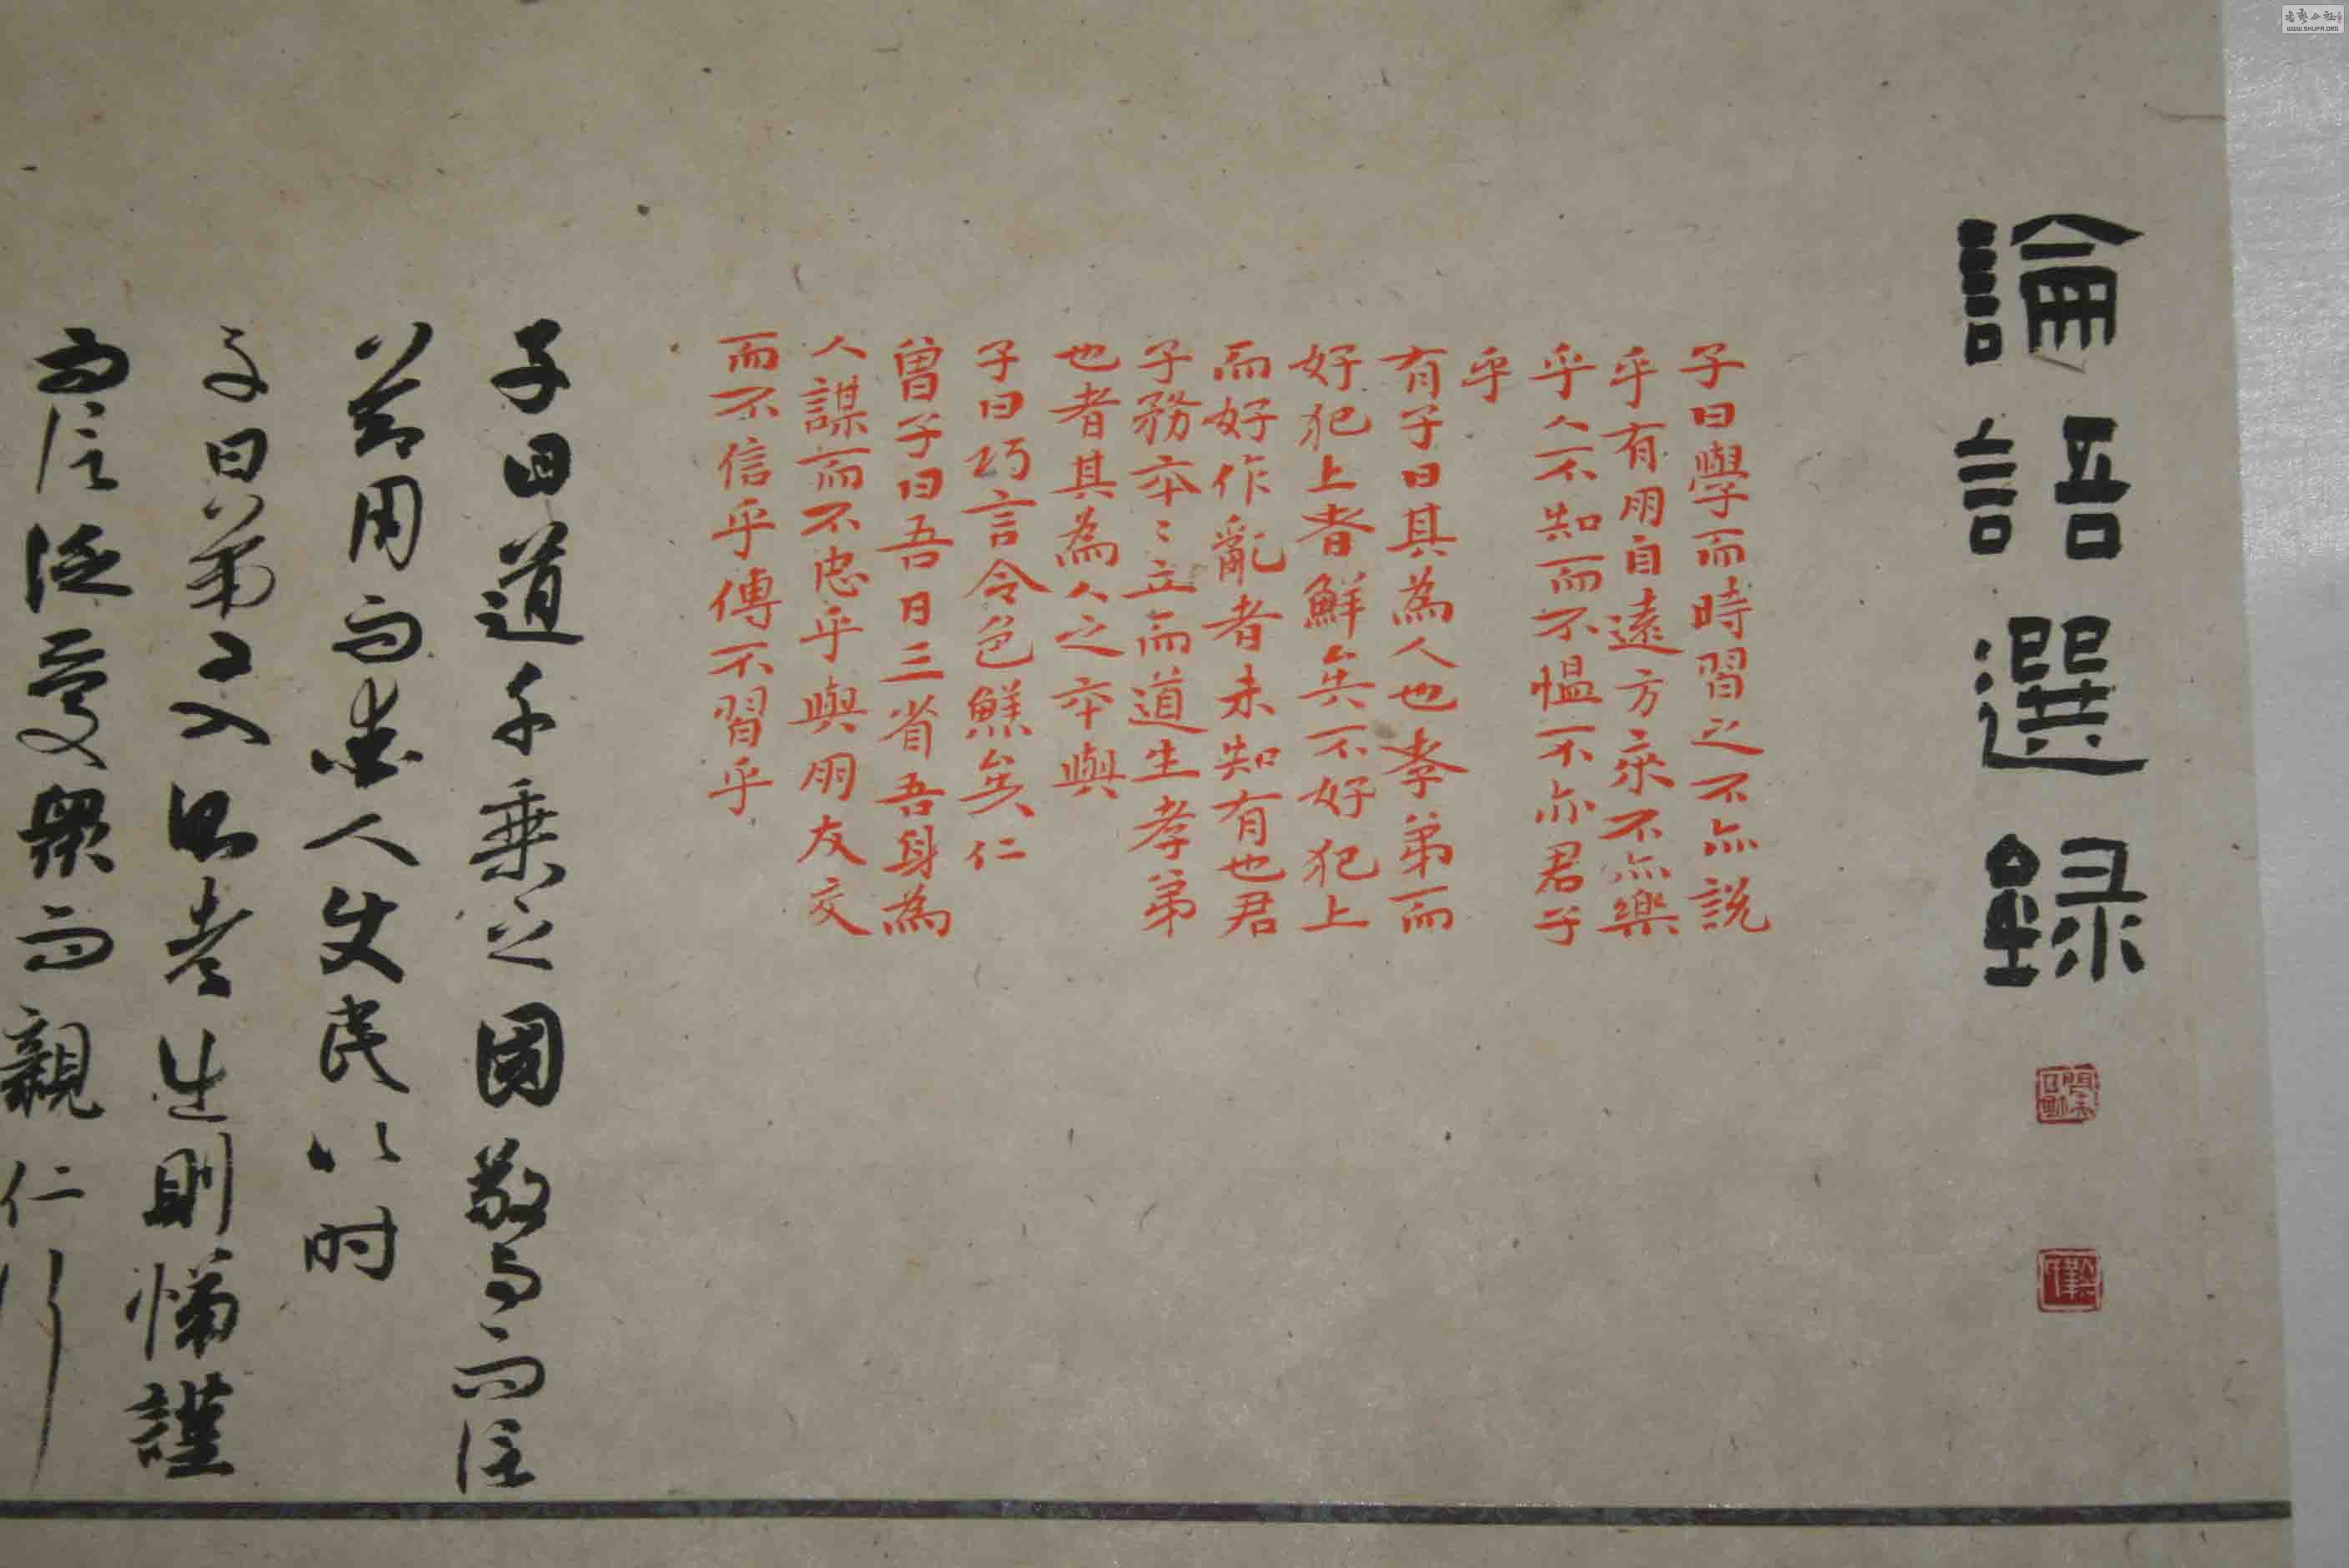 論語選録
子曰學而時習之不亦説
乎有朋自遠方來不亦樂
乎人不知而不愠不亦君子
乎
有子曰其為人也孝弟而
好犯上者鮮矣不好犯上
而好作亂者未知有也君
子務本〻立而道生孝弟
也者其為人之本與
子曰巧言令色鮮矣仁
曾子曰吾日三省吾身為
人謀而不忠乎與朋友交
而不信乎傳不習乎
子曰道千乘之國敬事而信
節用而愛人使民以时
子曰弟子入則孝出則悌謹
而信汎愛衆而親仁行
WWW.SHUFA.ORG